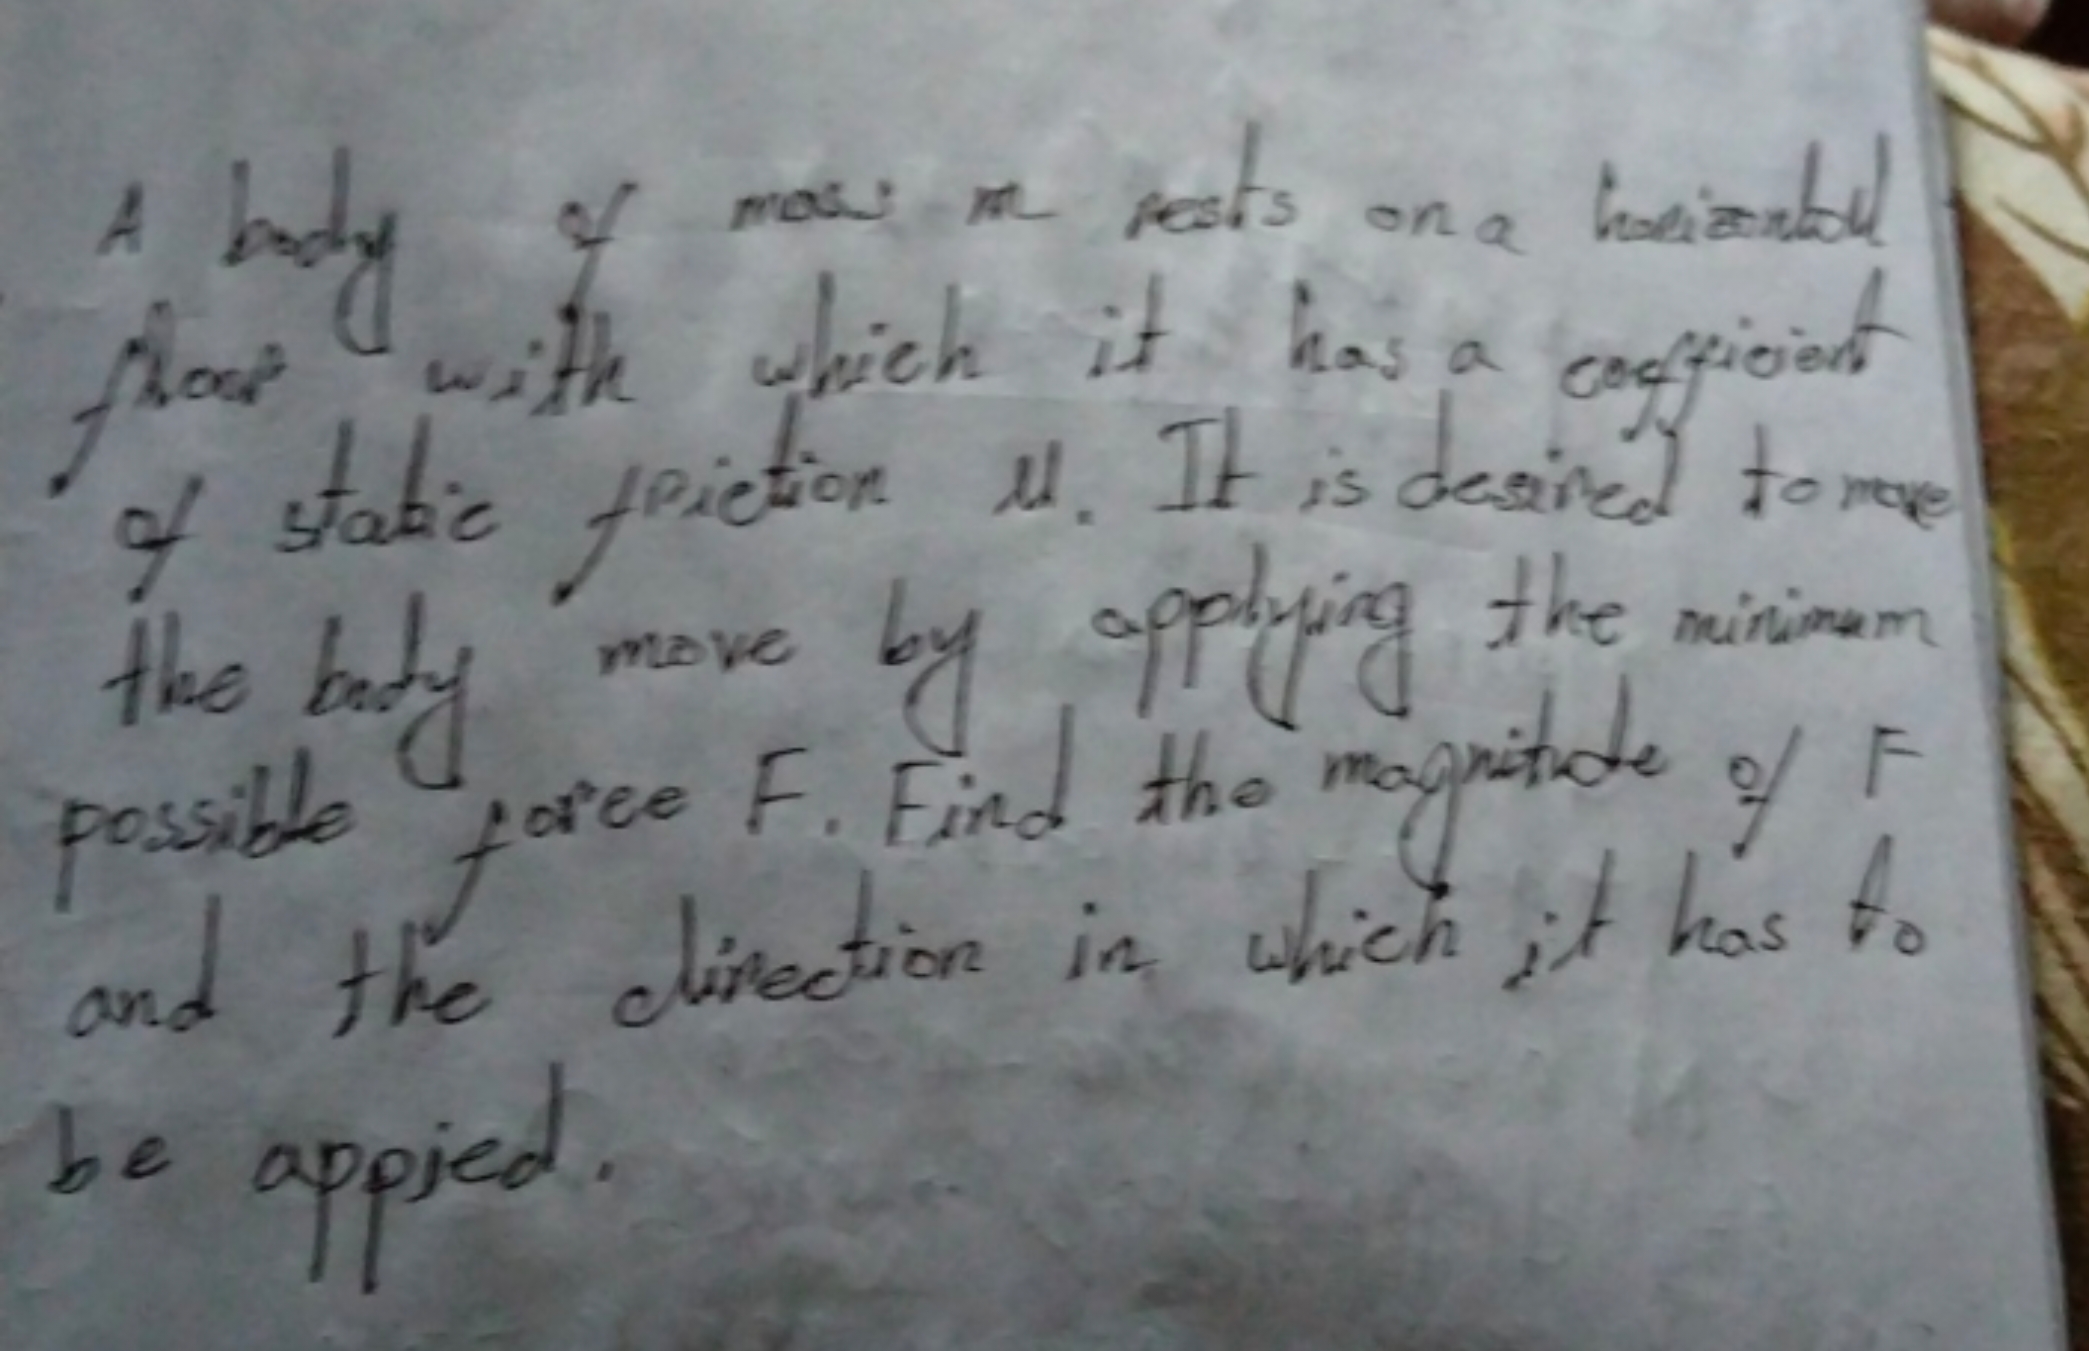 A body of mass m rests on a horizontall
floor with which it has a coefficient
of static friction μ. It is desired to move
the body move by applying the minimum
possible force F. Find the magnitude of F
and the direction in which it has to
be appied.